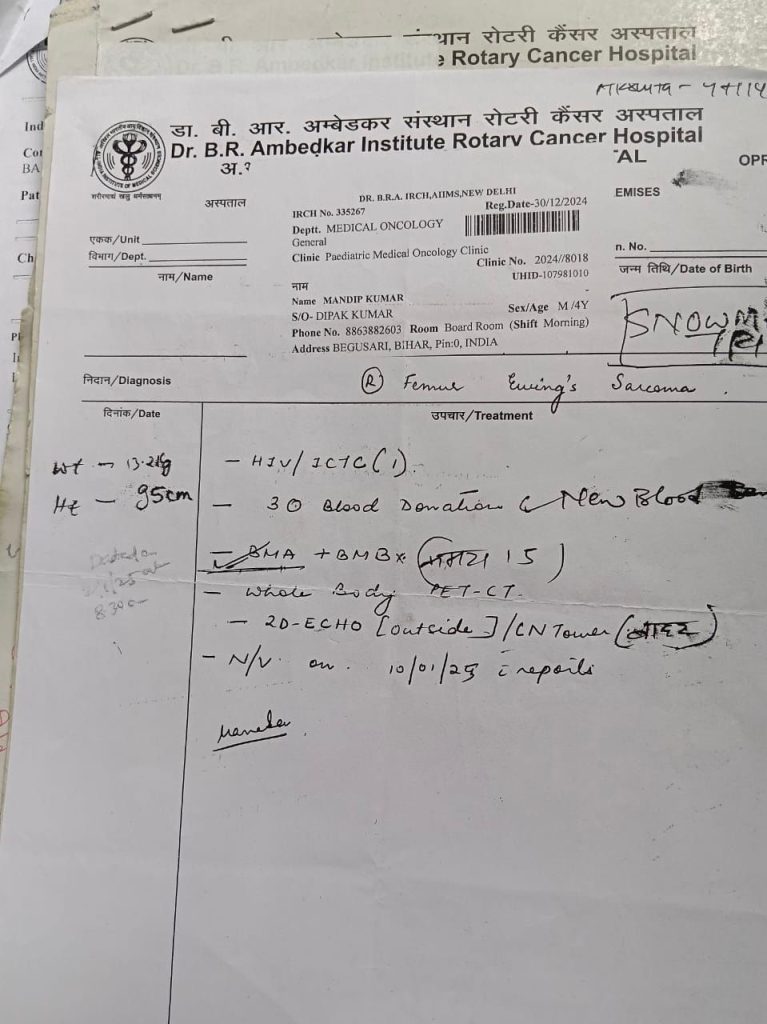 थान रोटरी कैंसर अस्पताल
Rotary Cancer Hospital
डा. बी. आर. अम्बेडकर संस्थान रोटरी कैंसर अस्पताल
Dr. B.R. Ambedkar Institute Rotary Cancer Hospital
अ.
AL
OPR
शरीरमाद्यं खलु धर्मसाधनम्
अस्पताल
DR. B.R.A. IRCH,AIIMS,NEW DELHI
EMISES
IRCH No. 335267
Reg.Date-30/12/2024
Deptt. MEDICAL ONCOLOGY
General
एकक/Unit
विभाग/Dept.
Clinic Paediatric Medical Oncology Clinic
Clinic No. 2024//8018
n. No.
UHID-107981010
नाम/Name
नाम
जन्म तिथि/Date of Birth
Name MANDIP KUMAR
S/O- DIPAK KUMAR
Sex/Age M /4Y
Phone No. 8863882603 Room Board Room (Shift Morning)
Address BEGUSARI, BIHAR, Pin:0, INDIA
निदान/Diagnosis
(R) Femur Ewing's Sarcoma
दिनांक/Date
उपचार/Treatment
Wt - 13.2kg
Ht - 95cm
- HIV/ICTC (1)
- 30 Blood Donation New Blood
- BMA + BMBx 15)
- Whole Body PET-CT.
- 2D-ECHO [outside]/CN Tower (बाहर)
- N/V on 10/01/25 c reports
8:30